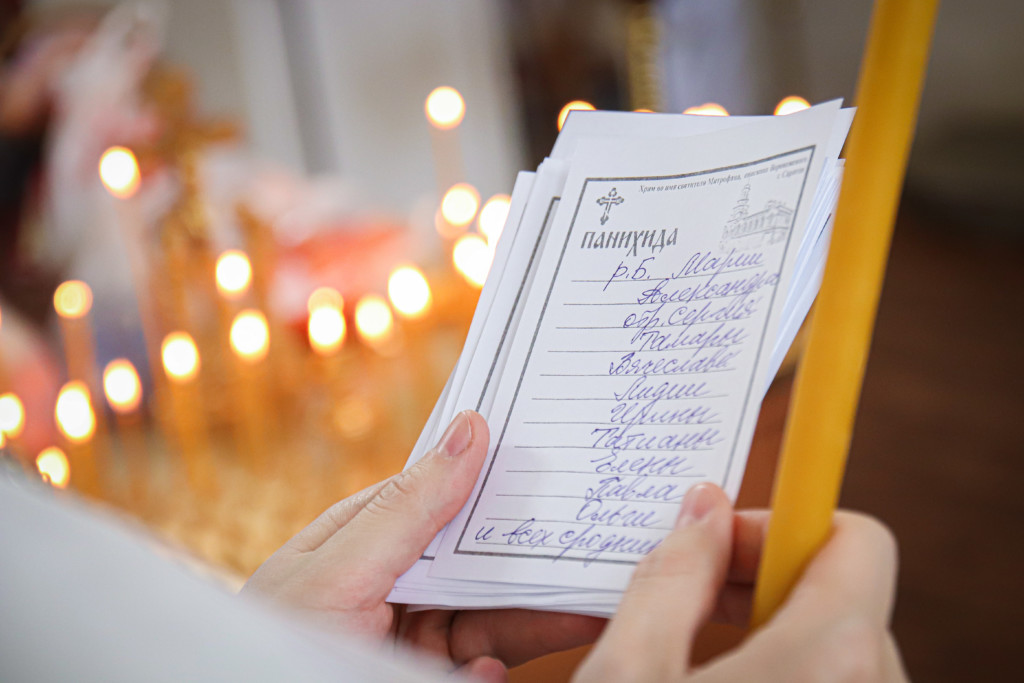 Храм во имя святителя Митрофана, епископа Воронежского,
г. Саратов
ПАНИХИДА
р.Б. Марии
Александра
отр. Сергия
Тамары
Вячеслава
Лидии
Ирины
Татианы
Елены
Павла
Ольги
и всех сродник